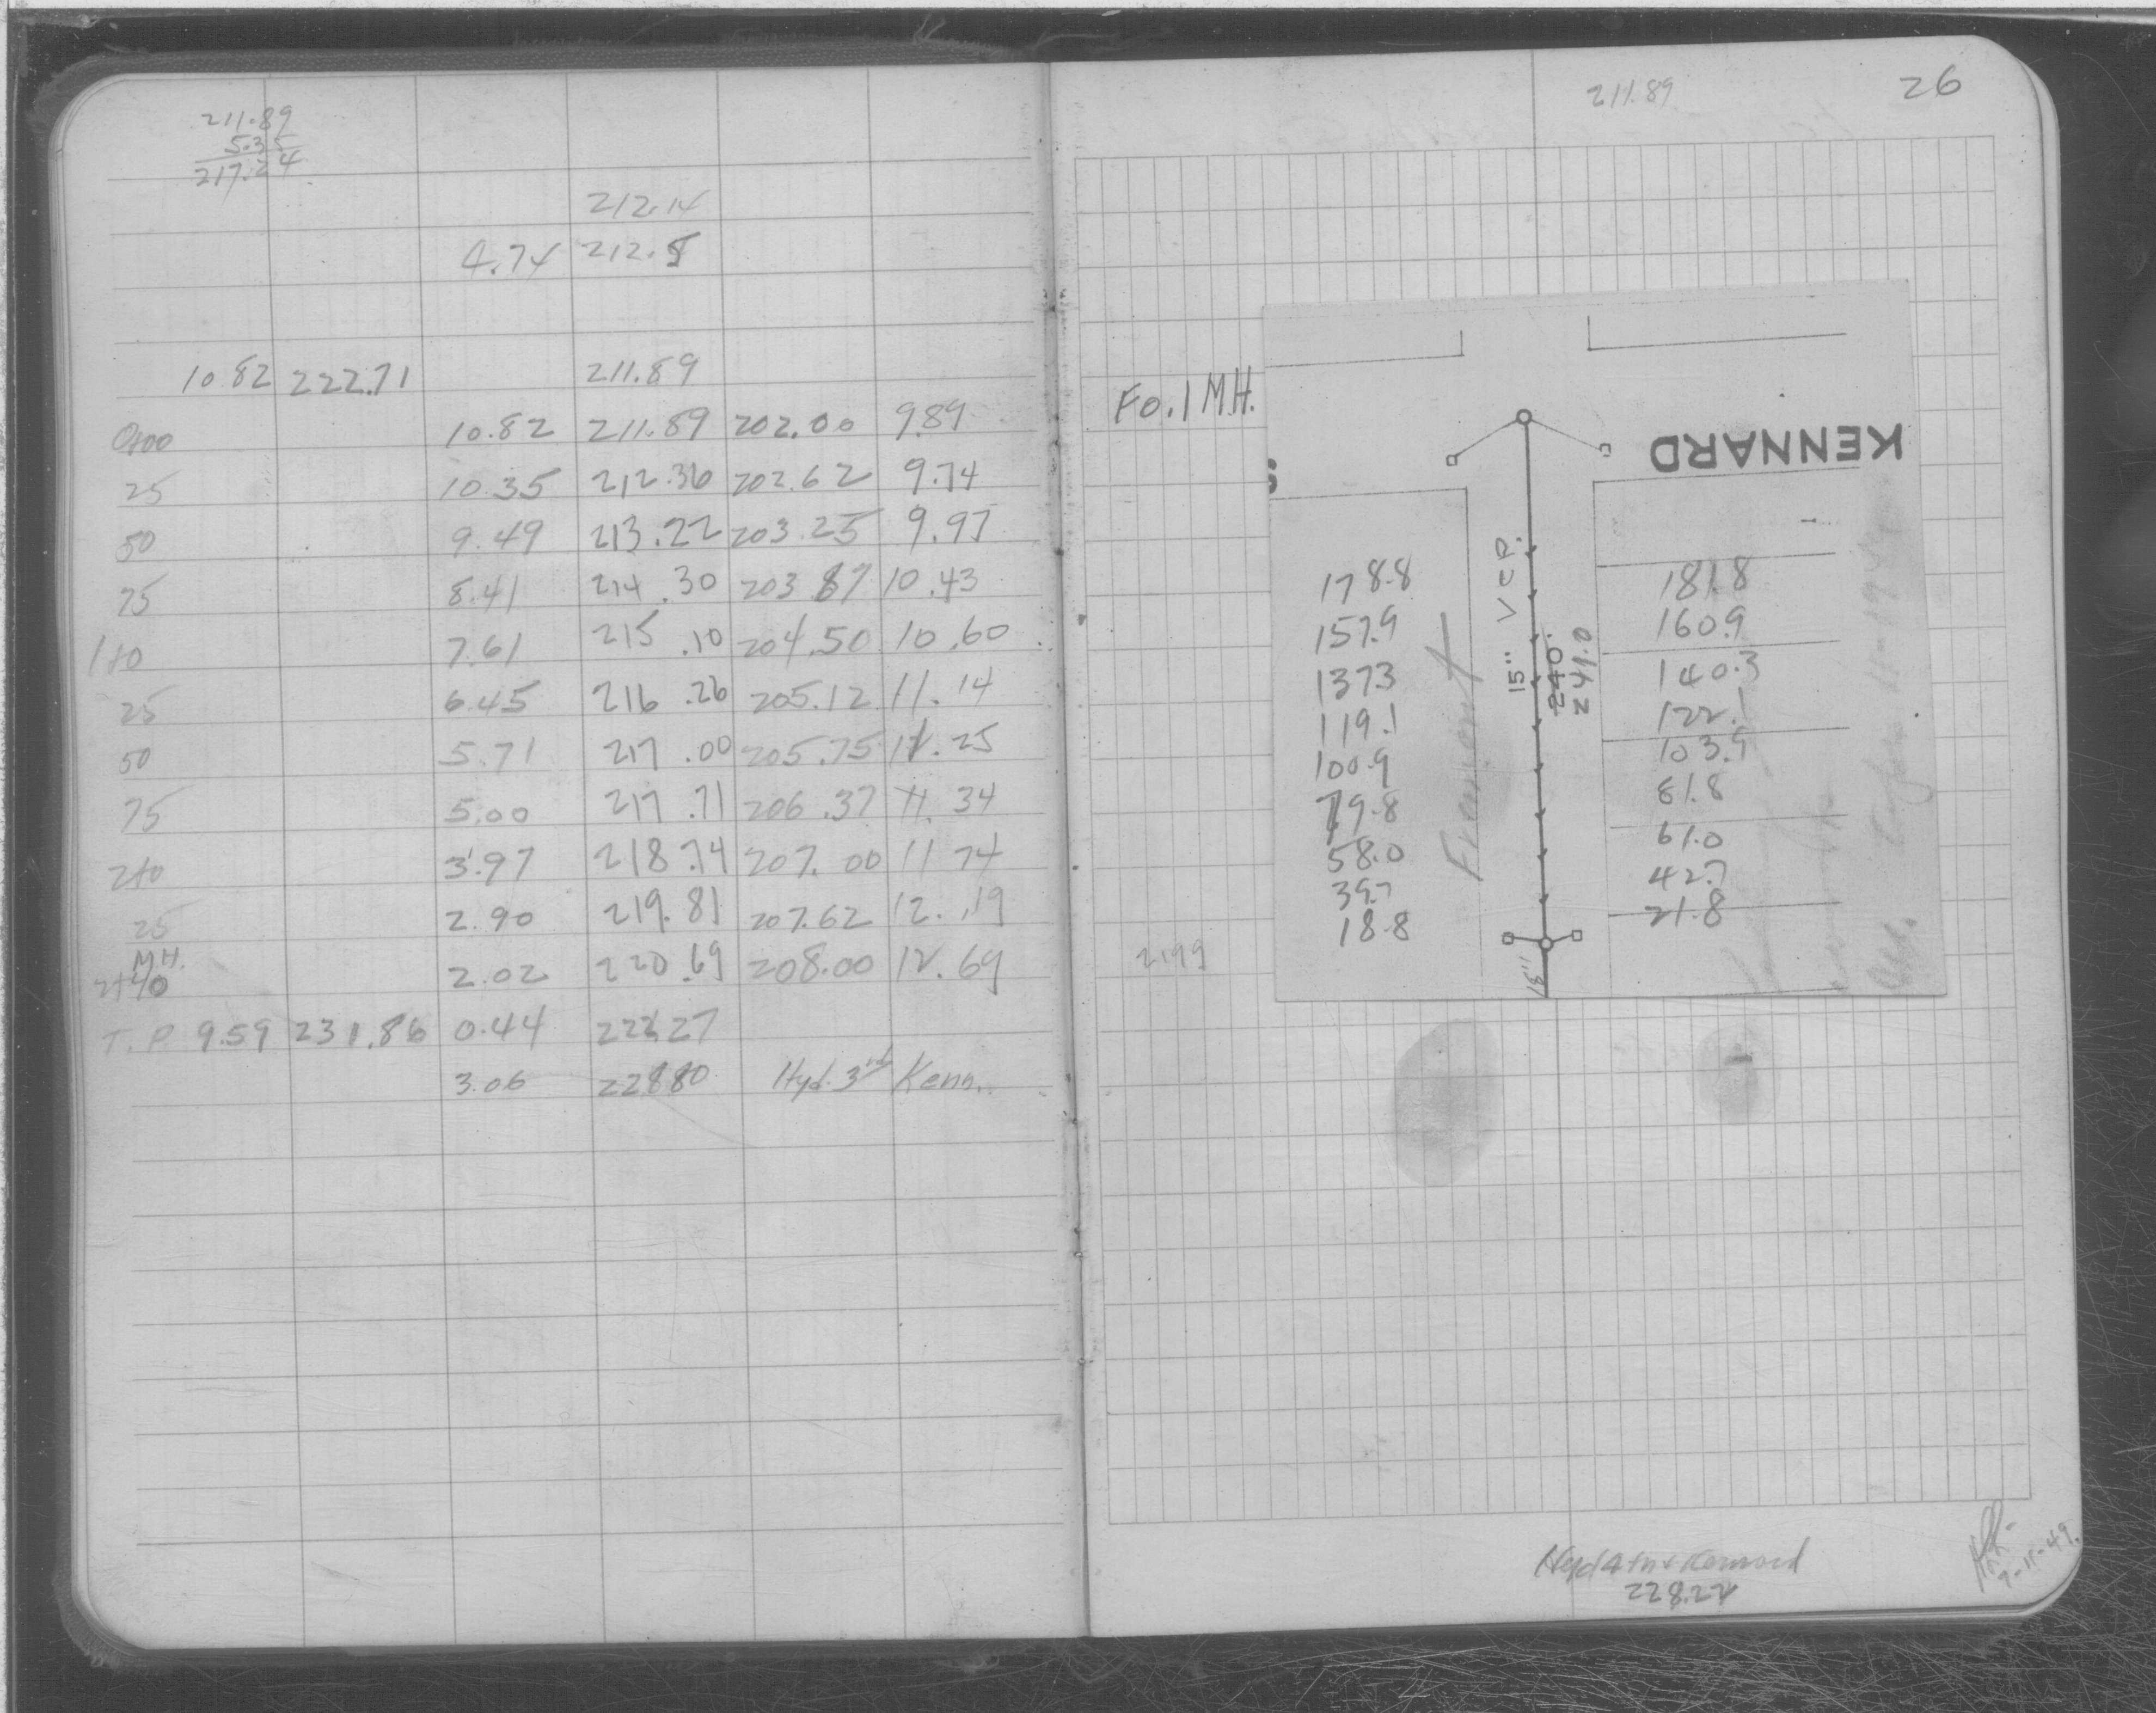 211.89
5.35
217.24
212.14
4.74 212.5
10.82 222.71 211.89
0+00 10.82 211.89 202.00 9.89
25 10.35 212.36 202.62 9.74
50 9.49 213.22 203.25 9.97
75 8.41 214.30 203.87 10.43
1+0 7.61 215.10 204.50 10.60
25 6.45 216.26 205.12 11.14
50 5.71 217.00 205.75 11.25
75 5.00 217.71 206.37 11.34
2+0 3.97 218.74 207.00 11.74
25 2.90 219.81 207.62 12.19
M.H.
2+40 2.02 220.69 208.00 12.69
T.P. 9.59 231.86 0.44 222.27
3.06 228.80 Hyd. 3rd Kenn.
211.89
26
Fo. 1 M.H.
KENNARD
S
15" V.C.P.
240.
241.0
Fremont
178.8 181.8
157.9 160.9
137.3 140.3
119.1 122.1
100.9 103.9
79.8 81.8
58.0 61.0
39.7 42.7
18.8 21.8
15"
2199
Hyd 4th & Kennard
228.22
9-11-49.